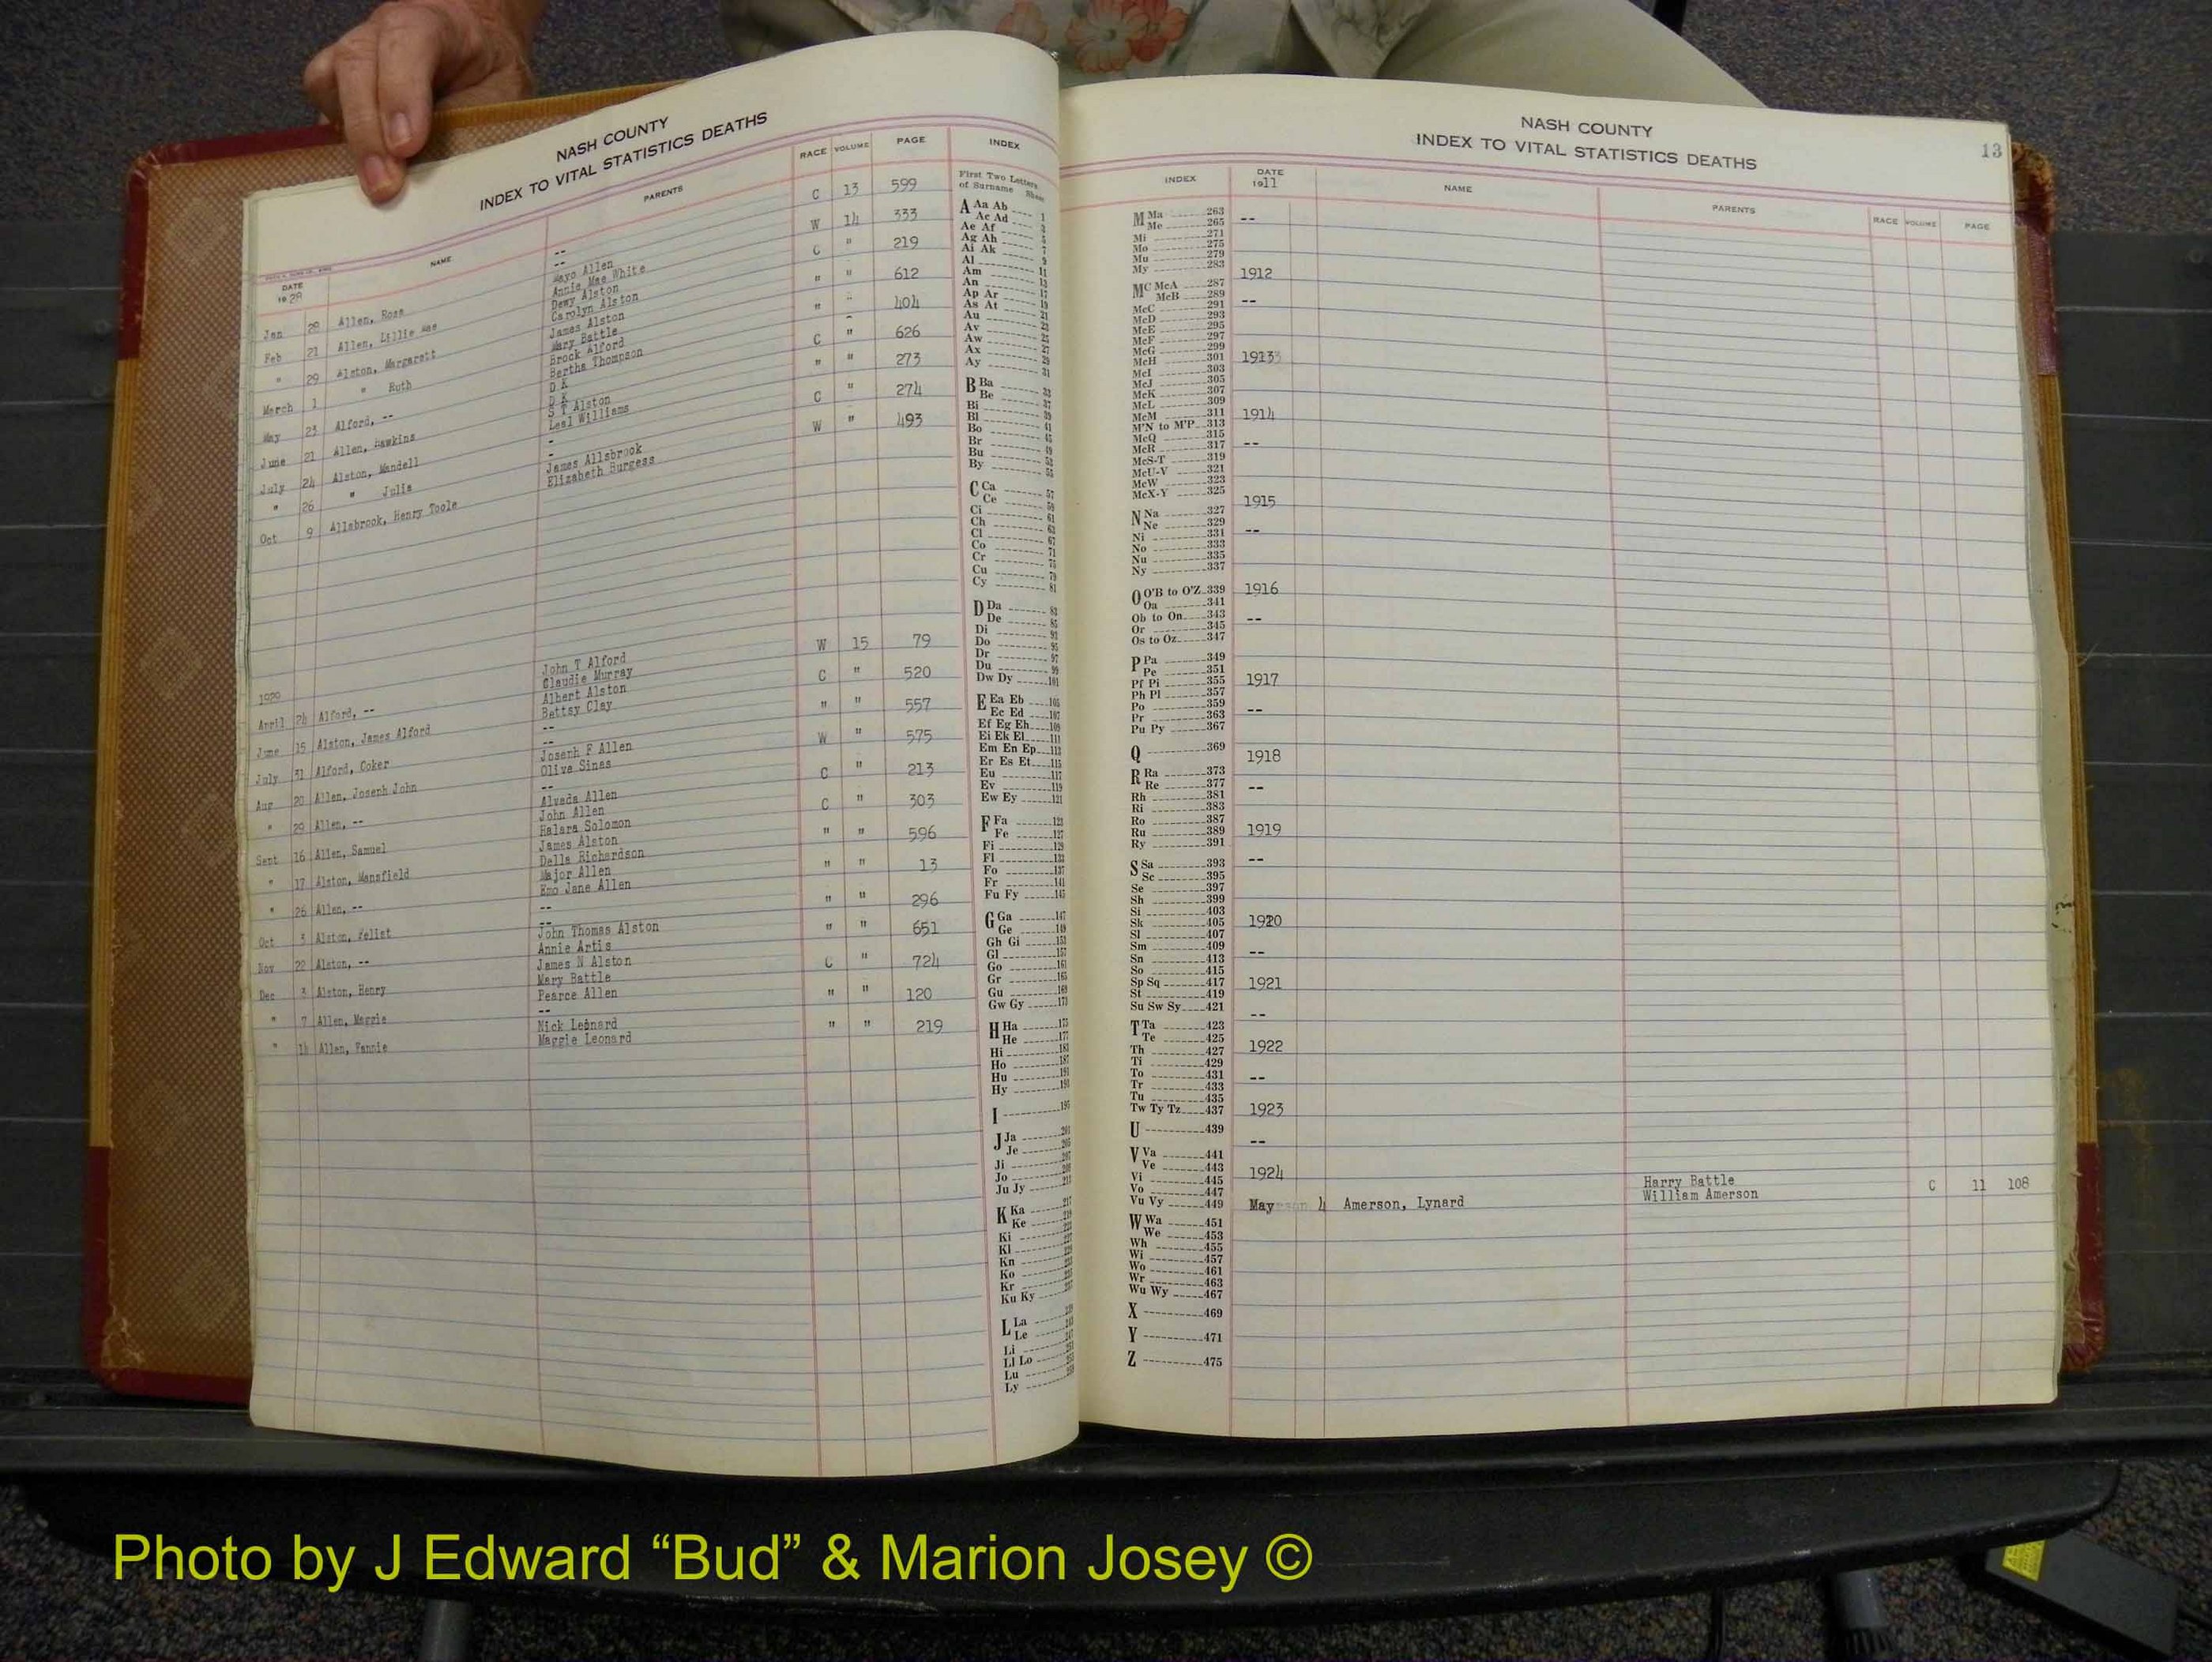 NASH COUNTY
INDEX TO VITAL STATISTICS DEATHS
DATE 1928 NAME PARENTS RACE VOLUME PAGE
Jan 28 Allen, Rosa -- -- C 13 599
Feb 21 Allen, Lillie Mae Mayo Allen Annie Mae White W 14 333
" 29 Alston, Margarett Dewy Alston Carolyn Alston C " 219
March 1 " Ruth James Alston Mary Battle " " 612
May 23 Alford, -- Brock Alford Bertha Thompson " " 404
June 21 Allen, Hawkins D K D K C " 626
July 24 Alston, Mandell S T Alston Leal Williams " " 273
" 26 " Julia - - C " 274
Oct 9 Allsbrook, Henry Toole James Allsbrook Elizabeth Burgess W " 493
April 24 Alford, -- John T Alford Claudie Murray W 15 79
June 15 Alston, James Alford Albert Alston Bettsy Clay C " 520
July 31 Alford, Coker -- -- " " 557
Aug 20 Allen, Joseph John Joseph F Allen Olive Sines W " 575
" 29 Allen, -- -- Alveda Allen C " 213
Sept 16 Allen, Samuel John Allen Halara Solomon C " 303
" 17 Alston, Mansfield James Alston Della Richardson " " 596
" 26 Allen, -- Major Allen Emo Jane Allen " " 13
Oct 3 Alston, Felist -- -- " " 296
Nov 22 Alston, -- John Thomas Alston Annie Artis " " 651
Dec 3 Alston, Henry James N Alston Mary Battle C " 724
" 7 Allen, Maggie Pearce Allen -- " " 120
" 14 Allen, Fannie Nick Leonard Maggie Leonard " " 219
INDEX
First Two Letters
of Surname Sheet
A Aa Ab 1
Ac Ad 3
Ae Af 5
Ag Ah 7
Ai Ak 9
Al 11
Am 13
An
Ap Ar 17
As At 19
Au 21
Av 23
Aw 25
Ax 27
Ay 29
31
B Ba 33
Be 37
Bi 39
Bl 41
Bo 45
Br 49
Bu 53
By 55
C Ca 57
Ce 59
Ci 61
Ch 63
Cl 67
Co 71
Cr 75
Cu 79
Cy 81
D Da 83
De 85
Di 93
Do 95
Dr 97
Du 99
Dw Dy 101
E Ea Eb 105
Ec Ed 107
Ef Eg Eh 109
Ei Ek El 111
Em En Ep 113
Er Es Et 115
Eu 117
Ev 119
Ew Ey 121
F Fa 123
Fe 127
Fi 129
Fl 133
Fo 137
Fr 141
Fu Fy 145
G Ga 147
Ge 149
Gh Gi 153
Gl 157
Go 161
Gr 165
Gu 169
Gw Gy 173
H Ha 175
He 177
Hi 181
Ho 187
Hu 191
Hy 193
I 195
J Ja 201
Je 205
Ji 207
Jo
Ju Jy
K Ka 217
Ke
Ki
Kl
Kn
Ko
Kr
Ku Ky
L La
Le
Li
Ll Lo
Lu
Ly
NASH COUNTY
INDEX TO VITAL STATISTICS DEATHS
13
INDEX DATE 1911 NAME PARENTS RACE VOLUME PAGE
M Ma 263
Me 265
Mi 271
Mo 275
Mu 279
My 283
MC McA 287
McB 289
McC 291
McD 293
McE 295
McF 297
McG 299
McH 301
McI 303
McJ 305
McK 307
McL 309
McM 311
M'N to M'P 313
McQ 315
McR 317
McS-T 319
McU-V 321
McW 323
McX-Y 325
N Na 327
Ne 329
Ni 331
No 333
Nu 335
Ny 337
O O'B to O'Z 339
Oa 341
Ob to On 343
Or 345
Os to Oz 347
P Pa 349
Pe 351
Pf Pi 355
Ph Pl 357
Po 359
Pr 363
Pu Py 367
Q 369
R Ra 373
Re 377
Rh 381
Ri 383
Ro 387
Ru 389
Ry 391
S Sa 393
Sc 395
Se 397
Sh 399
Si 403
Sk 405
Sl 407
Sm 409
Sn 413
So 415
Sp Sq 417
St 419
Su Sw Sy 421
T Ta 423
Te 425
Th 427
Ti 429
To 431
Tr 433
Tu 435
Tw Ty Tz 437
U 439
V Va 441
Ve 443
Vi 445
Vo 447
Vu Vy 449
W Wa 451
We 453
Wh 455
Wi 457
Wo 461
Wr 463
Wu Wy 467
X 469
Y 471
Z 475
--
1912
--
1913
1914
--
1915
--
1916
--
1917
--
1918
--
1919
--
1920
--
1921
--
1922
--
1923
--
1924
May 4 Amerson, Lynard Harry Battle William Amerson C 11 108
Photo by J Edward “Bud” & Marion Josey ©